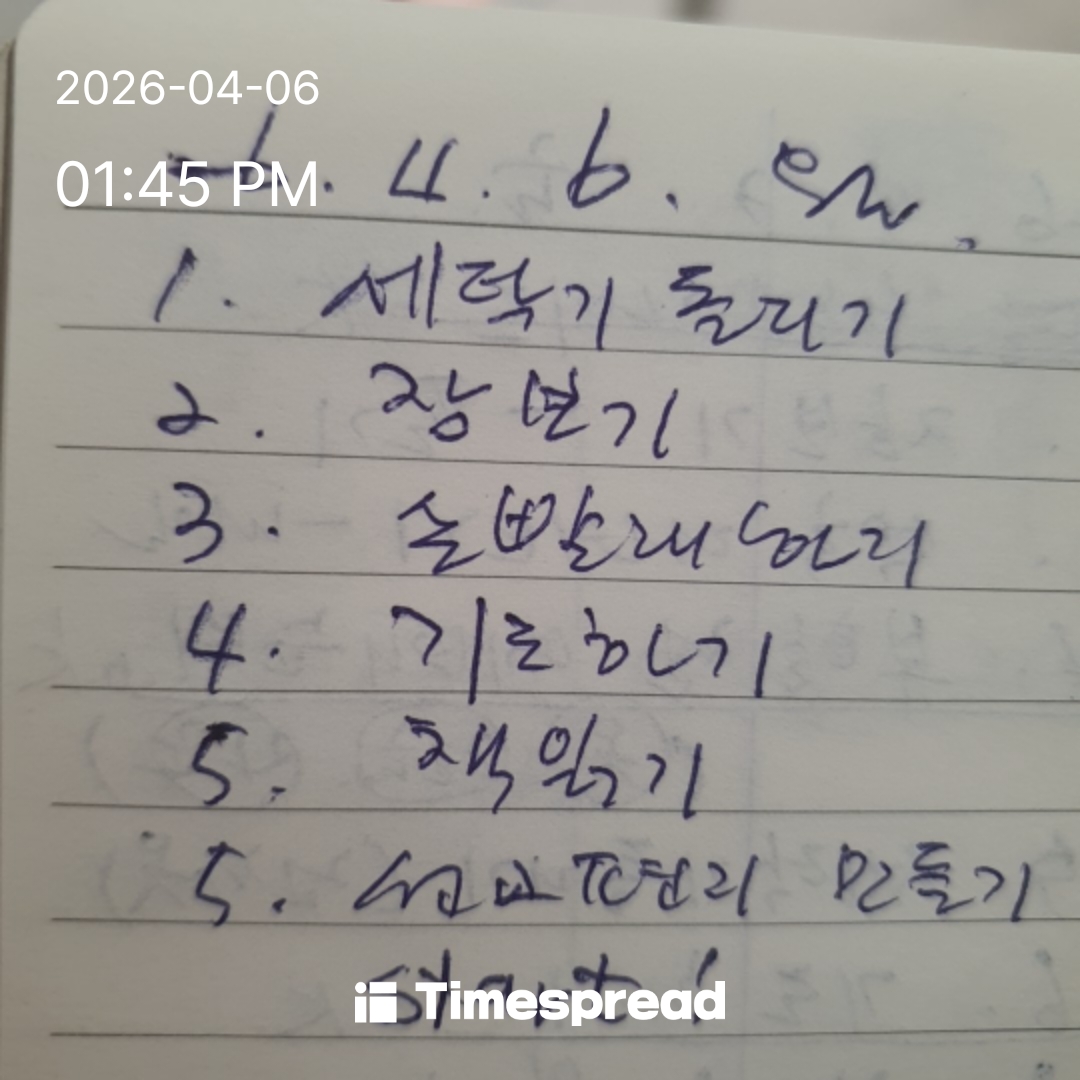 2026-04-06
01:45 PM
. 4. 6. 월.
1. 세탁기 돌리기
2. 장보기
3. 손빨래
4. 기도하기
5. 책 읽기
5. 만들기
start!
Timespread